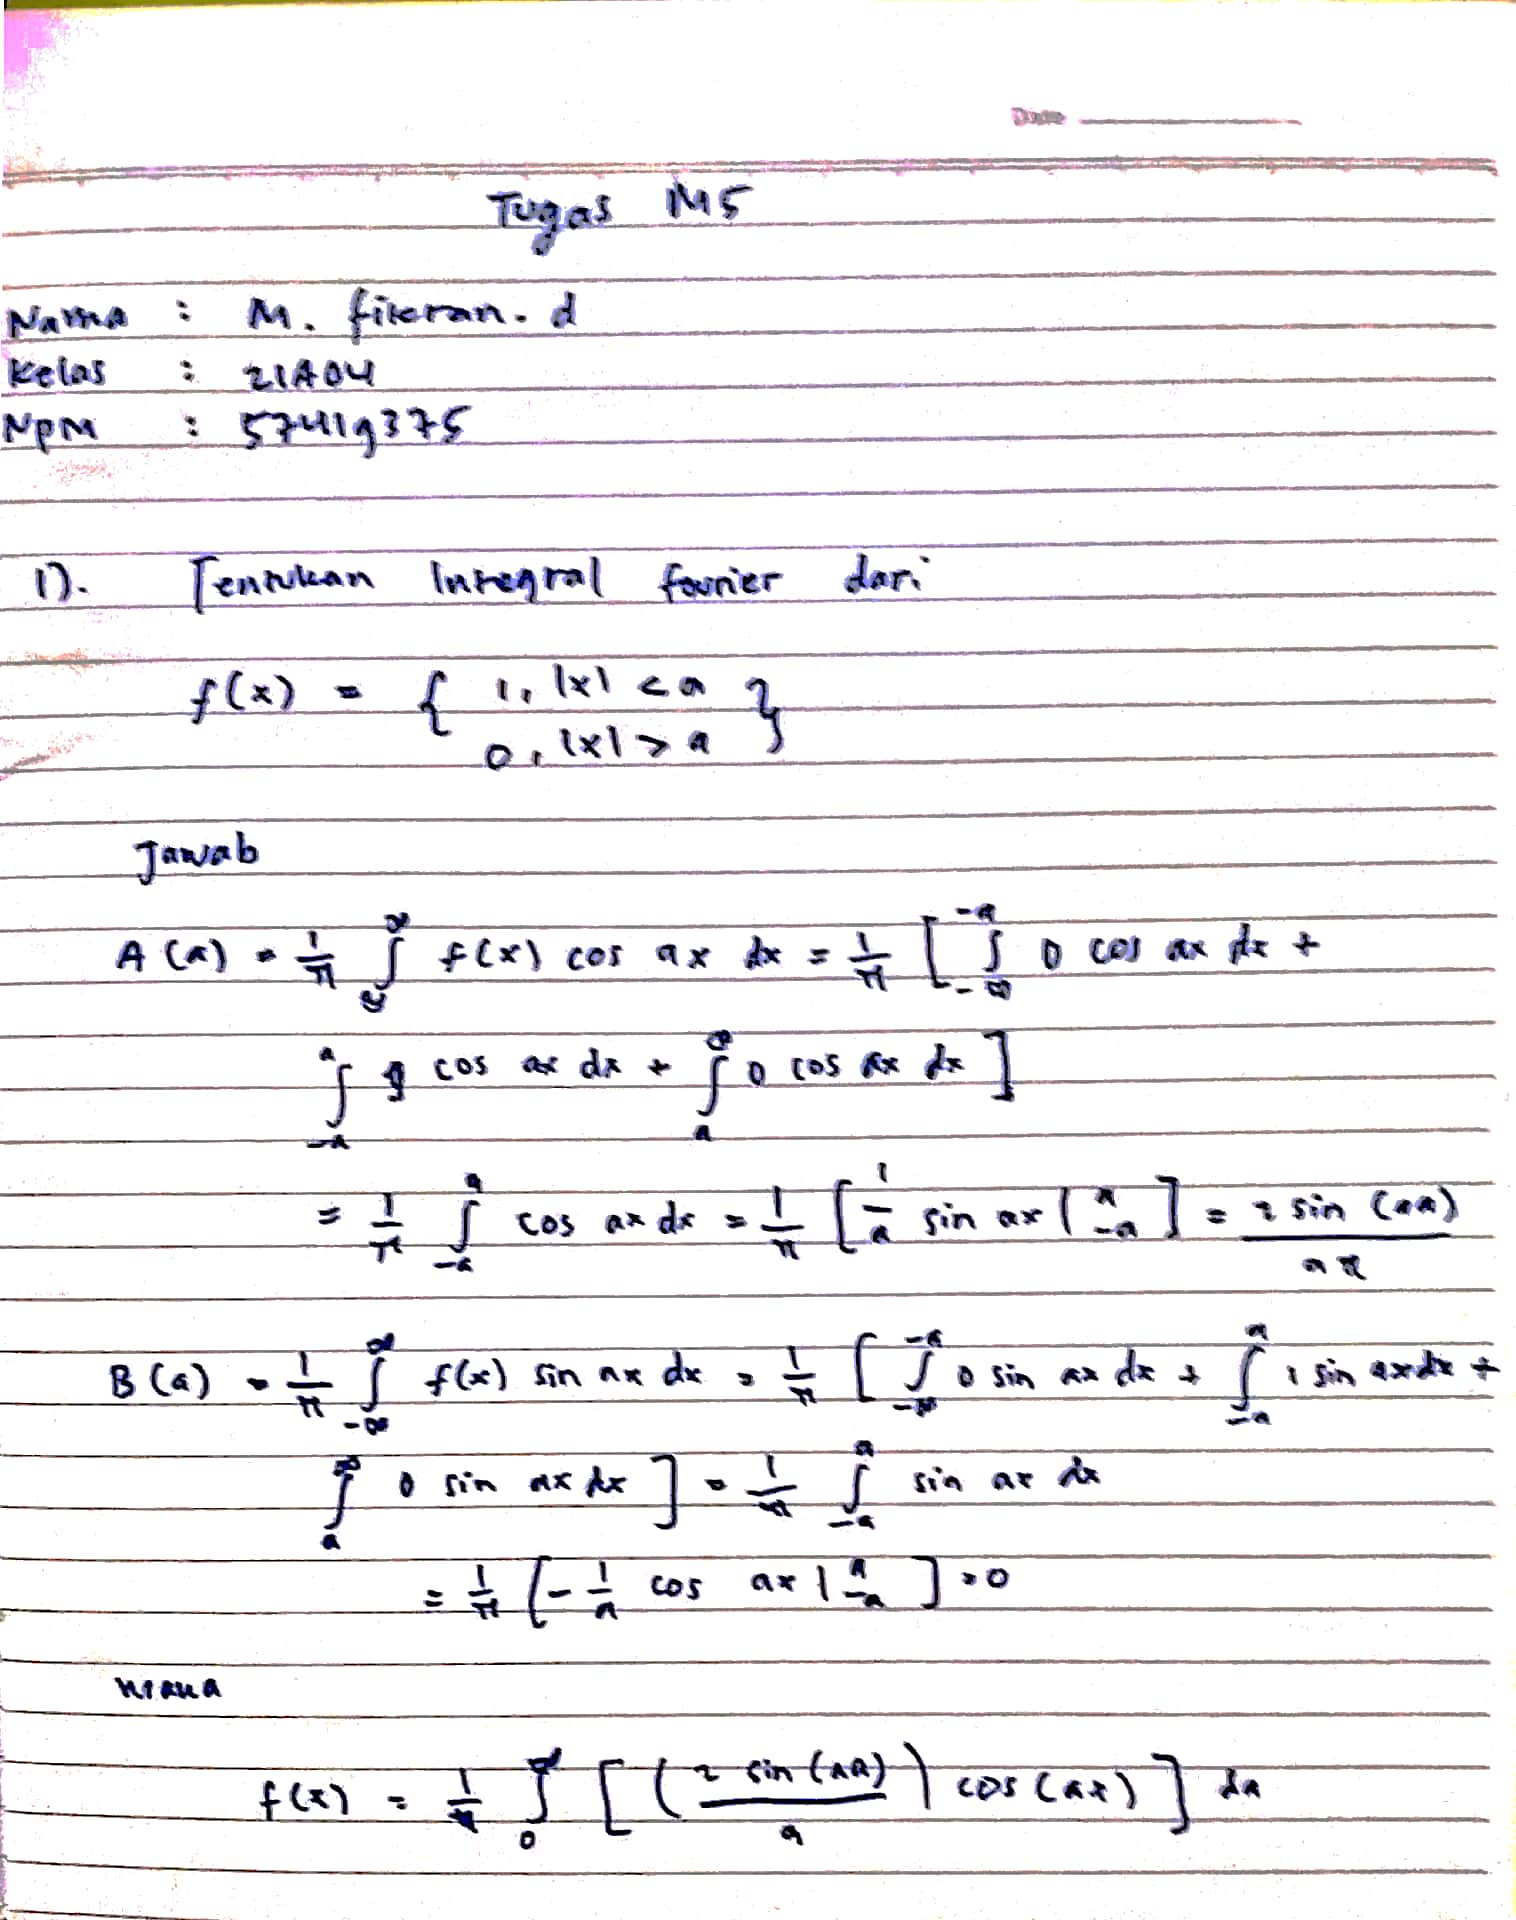 Date
Tugas M5
Nama : M. fikran. d
Kelas : 2IA04
NPM : 57419375
1). Tentukan Integral fourier dari
f(x) = { 1, |x| < a
0, |x| > a }
Jawab
A (a) = 1/π ∫_∞^∞ f(x) cos ax dx = 1/π [ ∫_-∞^-a 0 cos ax dx +
∫_-a^a 1 cos ax dx + ∫_a^∞ 0 cos ax dx ]
= 1/π ∫_-a^a cos ax dx = 1/π [ 1/a sin ax |_-a^a ] = 2 sin (aa) / aπ
B (a) = 1/π ∫_-∞^∞ f(x) sin ax dx = 1/π [ ∫_-∞^-a 0 sin ax dx + ∫_-a^a 1 sin ax dx +
∫_a^∞ 0 sin ax dx ] = 1/π ∫_-a^a sin ax dx
= 1/π [ - 1/a cos ax |_-a^a ] = 0
f(x) = 1/π ∫_0^∞ [ ( 2 sin (aa) / a ) cos (ax) ] da